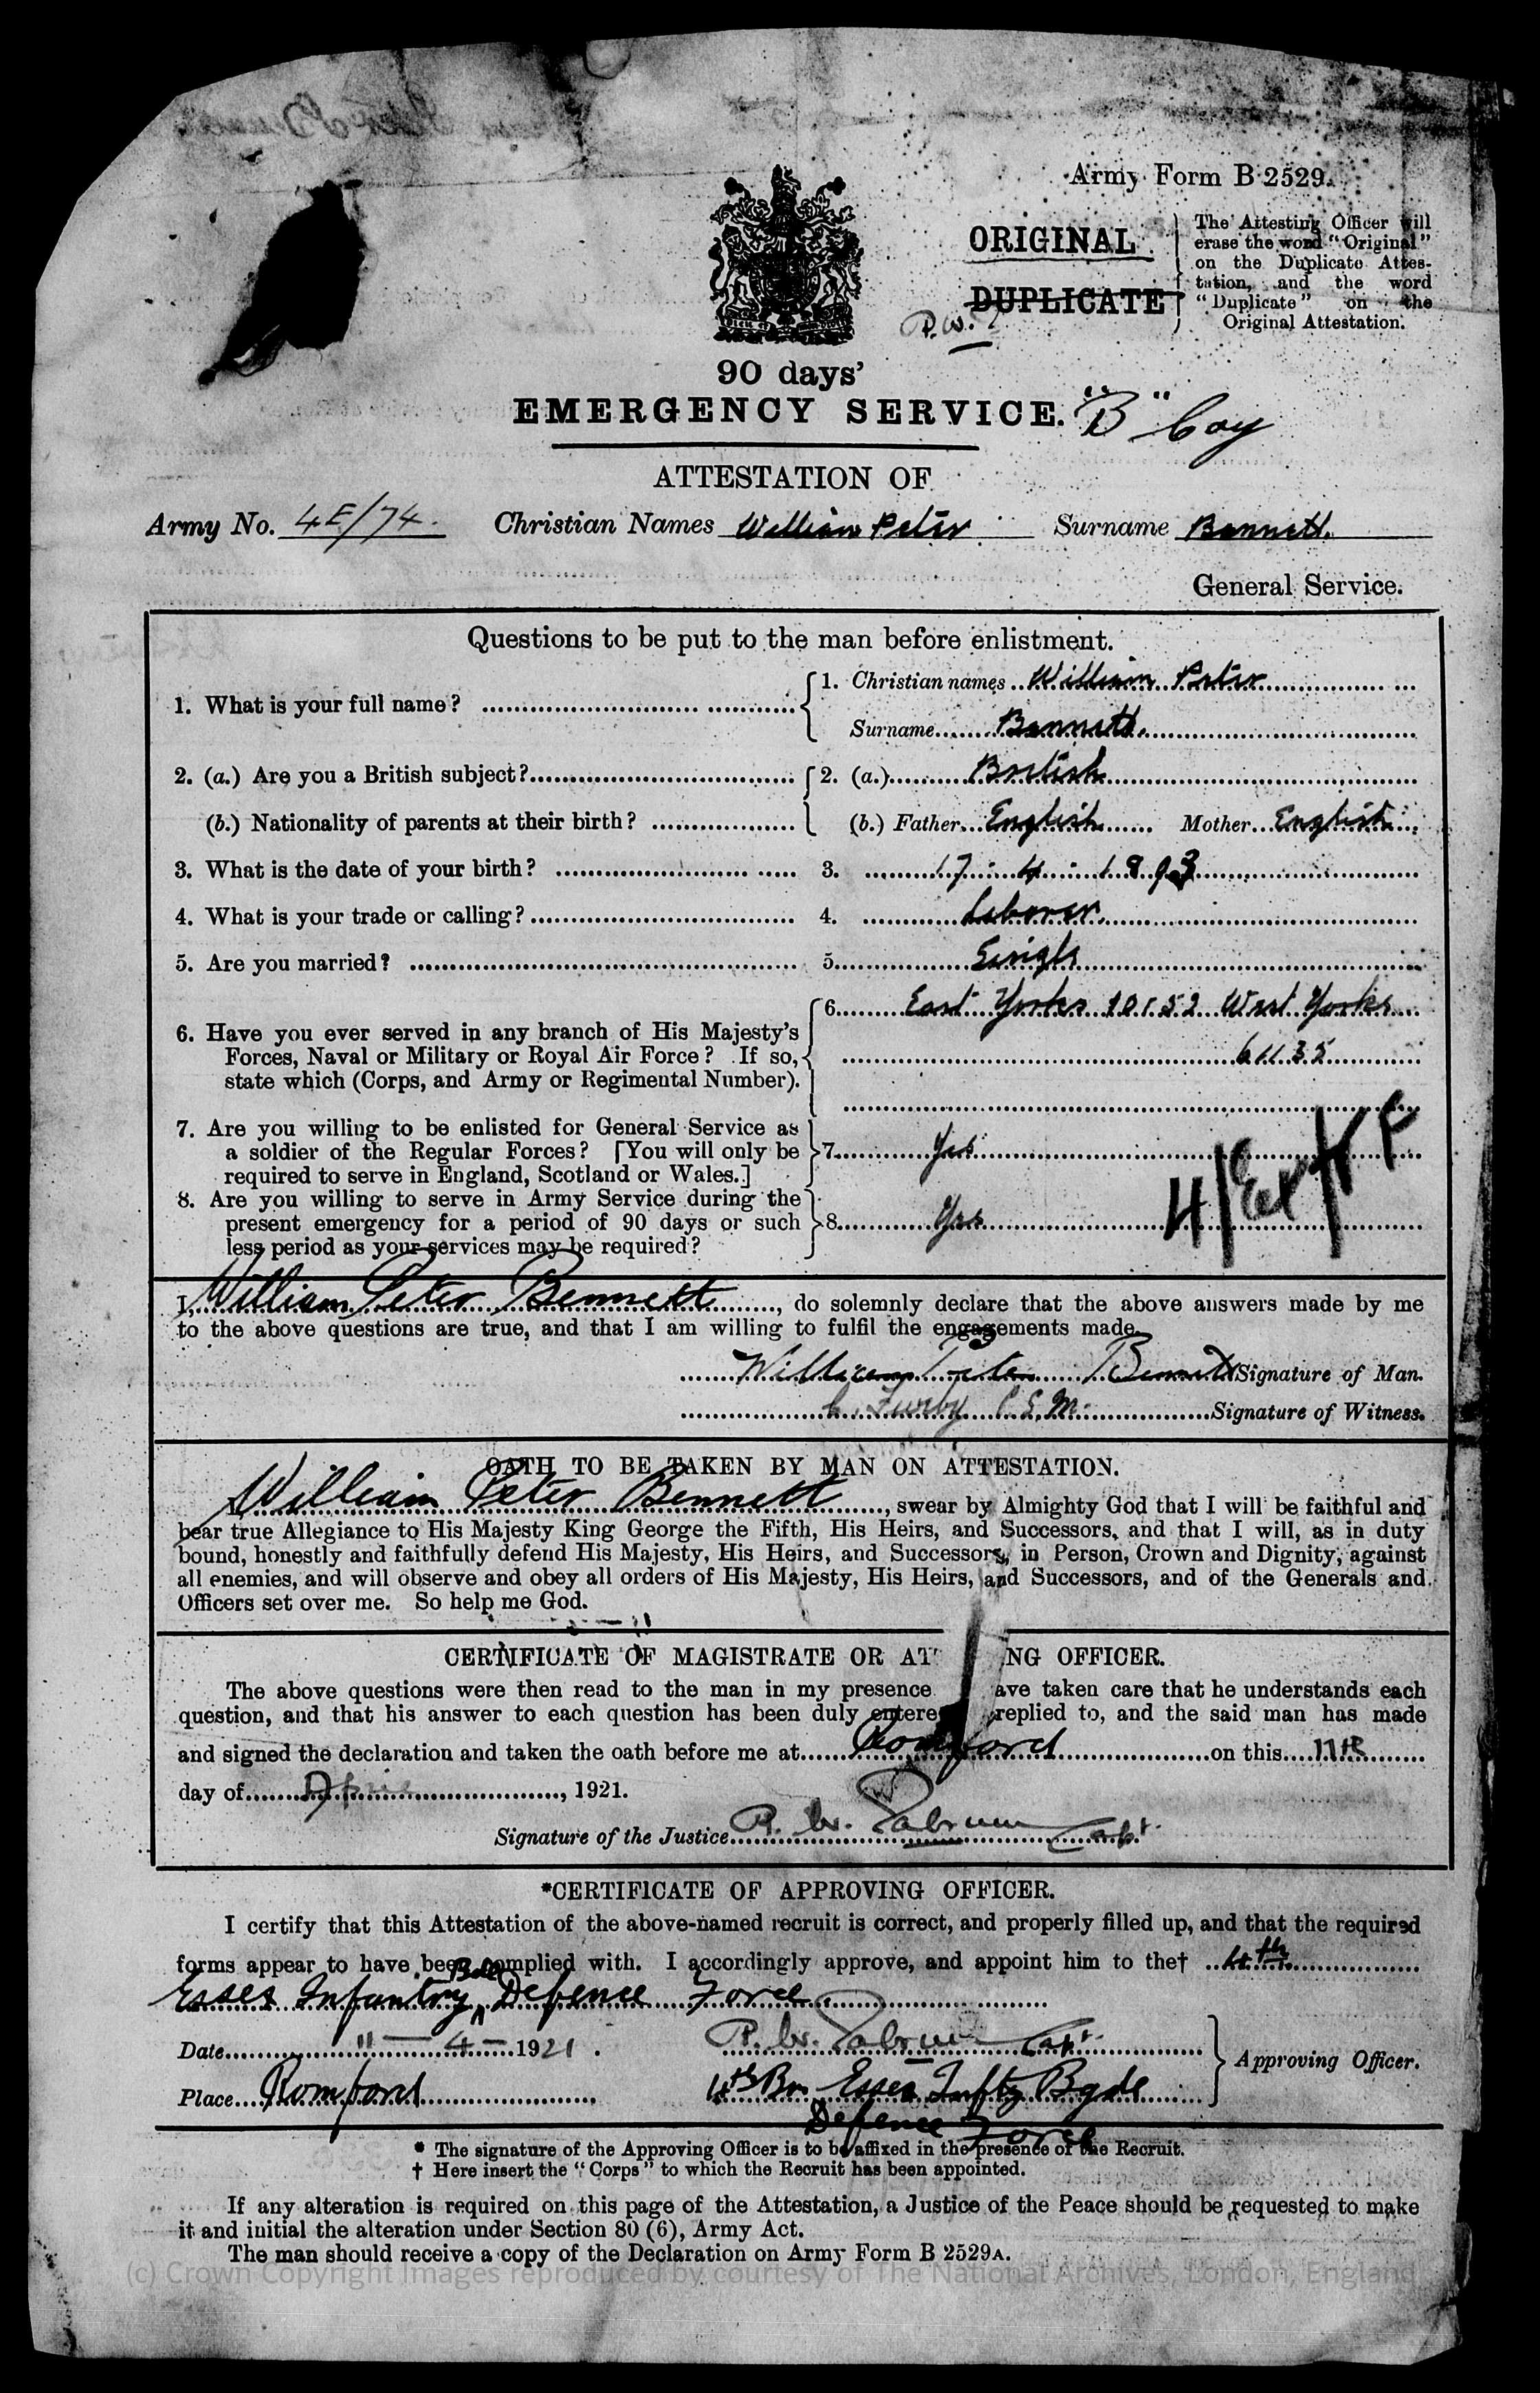 Army Form B 2529.
ORIGINAL
DUPLICATE
The Attesting Officer will
erase the word "Original"
on the Duplicate Attes-
tation, and the word
"Duplicate" on the
Original Attestation.
P.W.
90 days'
EMERGENCY SERVICE. "B" Coy
ATTESTATION OF
Army No. 4E/74. Christian Names William Peter Surname Bennett.
General Service.
Questions to be put to the man before enlistment.
1. What is your full name? 1. Christian names William Peter
Surname Bennett.
2. (a.) Are you a British subject? 2. (a.) British
(b.) Nationality of parents at their birth? (b.) Father English Mother English
3. What is the date of your birth? 3. 17 . 4 . 1893
4. What is your trade or calling? 4. Laborer.
5. Are you married? 5. Single
6. Have you ever served in any branch of His Majesty's
Forces, Naval or Military or Royal Air Force? If so,
state which (Corps, and Army or Regimental Number).
6. East Yorks 10152 West Yorks
61135
7. Are you willing to be enlisted for General Service as
a soldier of the Regular Forces? [You will only be
required to serve in England, Scotland or Wales.]
7. Yes
8. Are you willing to serve in Army Service during the
present emergency for a period of 90 days or such
less period as your services may be required?
8. Yes
I William Peter Bennett, do solemnly declare that the above answers made by me
to the above questions are true, and that I am willing to fulfil the engagements made.
William Peter Bennett Signature of Man.
C. Furby C.S.M. Signature of Witness.
OATH TO BE TAKEN BY MAN ON ATTESTATION.
I William Peter Bennett, swear by Almighty God that I will be faithful and
bear true Allegiance to His Majesty King George the Fifth, His Heirs, and Successors, and that I will, as in duty
bound, honestly and faithfully defend His Majesty, His Heirs, and Successors, in Person, Crown and Dignity, against
all enemies, and will observe and obey all orders of His Majesty, His Heirs, and Successors, and of the Generals and
Officers set over me. So help me God.
CERTIFICATE OF MAGISTRATE OR AT NG OFFICER.
The above questions were then read to the man in my presence ave taken care that he understands each
question, and that his answer to each question has been duly entere replied to, and the said man has made
and signed the declaration and taken the oath before me at Romford on this 11th
day of April, 1921.
Signature of the Justice P. W. Capt.
*CERTIFICATE OF APPROVING OFFICER.
I certify that this Attestation of the above-named recruit is correct, and properly filled up, and that the required
forms appear to have been complied with. I accordingly approve, and appoint him to the† 4th
Essex Infantry Bde Defence Force
Date 11 – 4 – 1921. P. W. Capt.
Approving Officer.
Place Romford 4th Bn Essex Infty Bgde
Defence Force
* The signature of the Approving Officer is to be affixed in the presence of the Recruit.
† Here insert the "Corps" to which the Recruit has been appointed.
If any alteration is required on this page of the Attestation, a Justice of the Peace should be requested to make
it and initial the alteration under Section 80 (6), Army Act.
The man should receive a copy of the Declaration on Army Form B 2529A.
(c) Crown Copyright Images reproduced by courtesy of The National Archives, London, England